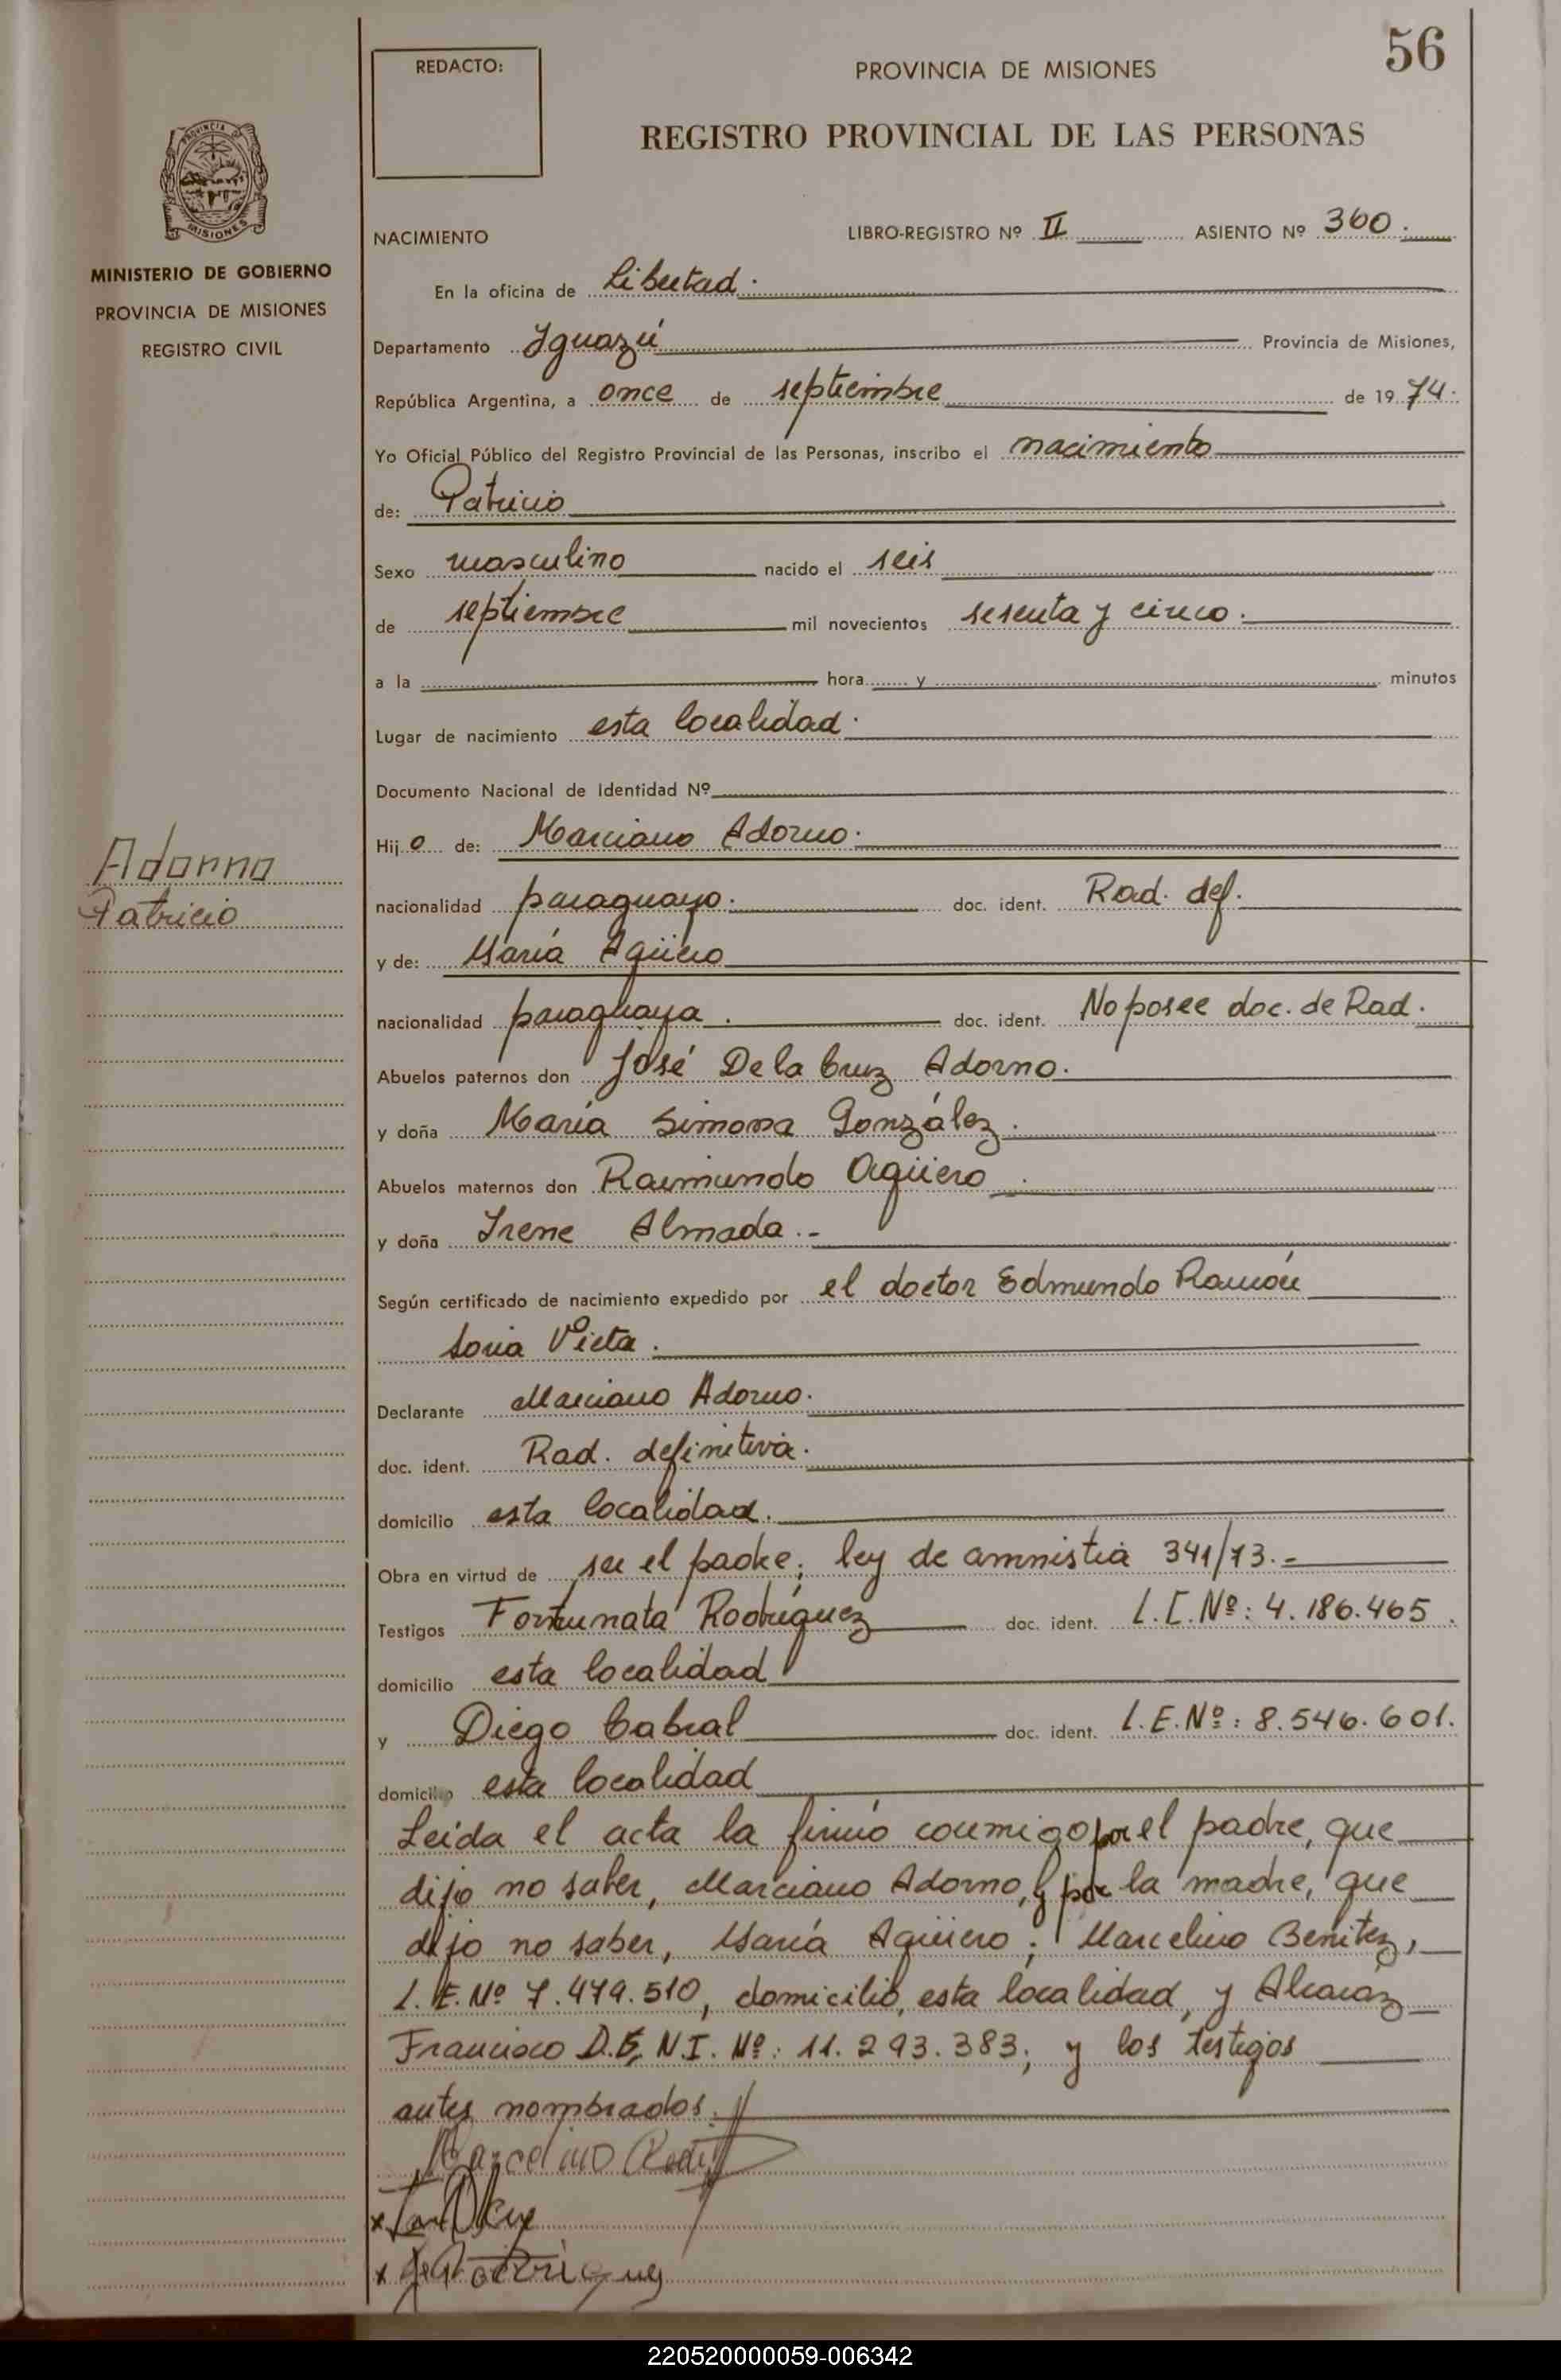 56
REDACTO:
PROVINCIA DE MISIONES
REGISTRO PROVINCIAL DE LAS PERSONAS
PROVINCIA DE
MISIONES
MINISTERIO DE GOBIERNO
PROVINCIA DE MISIONES
REGISTRO CIVIL
NACIMIENTO LIBRO-REGISTRO Nº II ASIENTO Nº 360.
En la oficina de Libertad.
Departamento Iguazú Provincia de Misiones,
República Argentina, a once de septiembre de 1974.
Yo Oficial Público del Registro Provincial de las Personas, inscribo el nacimiento
de: Patricio
Sexo masculino nacido el seis
de septiembre mil novecientos sesenta y cinco.
a la hora y minutos
Lugar de nacimiento esta localidad.
Documento Nacional de Identidad Nº
Hijo de: Marciano Adorno.
Adorno
Patricio
nacionalidad paraguayo. doc. ident. Rad. def.
y de: María Agüero
nacionalidad paraguaya. doc. ident. No posee doc. de Rad.
Abuelos paternos don José De la Cruz Adorno.
y doña María Simona González.
Abuelos maternos don Raimundo Agüero.
y doña Irene Almada.-
Según certificado de nacimiento expedido por el doctor Edmundo Ramón
Soria Vieta.
Declarante Marciano Adorno.
doc. ident. Rad. definitiva.
domicilio esta localidad.
Obra en virtud de ser el padre; ley de amnistia 341/73.-
Testigos Fortunata Rodríguez doc. ident. L.C.Nº: 4.186.465.
domicilio esta localidad
y Diego Cabral doc. ident. L.E.Nº: 8.546.601.
domicilio esta localidad
Leída el acta la firmó conmigo por el padre, que
dijo no saber, Marciano Adorno, y por la madre, que
dijo no saber, María Agüero; Marcelino Benitez,
L.E.Nº 7.479.510, domicilio, esta localidad, y Alcaráz
Francisco D.E, N I. Nº: 11.293.383; y los testigos
antes nombrados.
Marcelino
220520000059-006342